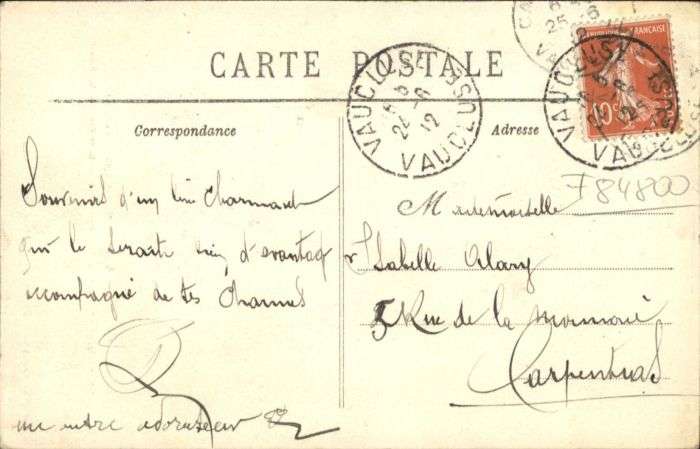 CARTE POSTALE
Correspondance
Adresse
VAUCLUSE VAUCLUSE
24 -6 12
RÉPUBLIQUE FRANÇAISE
10c
VAUCLUSE
F84800
Souvenirs d'un lieu Charmant
qui le serait bien d'avantag
accompagné de tes Charmes
un autre adorateur
Mademoiselle
Isabelle Alary
5 Rue de la monnaie
Carpentras